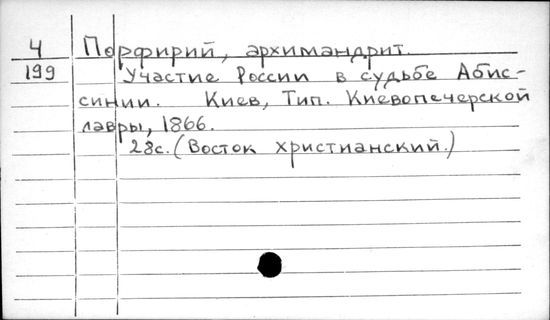 4 Порфирий, архимандрит.
199 Участие России в судьбе Абис-
синии. Киев, Тип. Киевопечерской
лавры, 1866.
28с. (Восток христианский.)